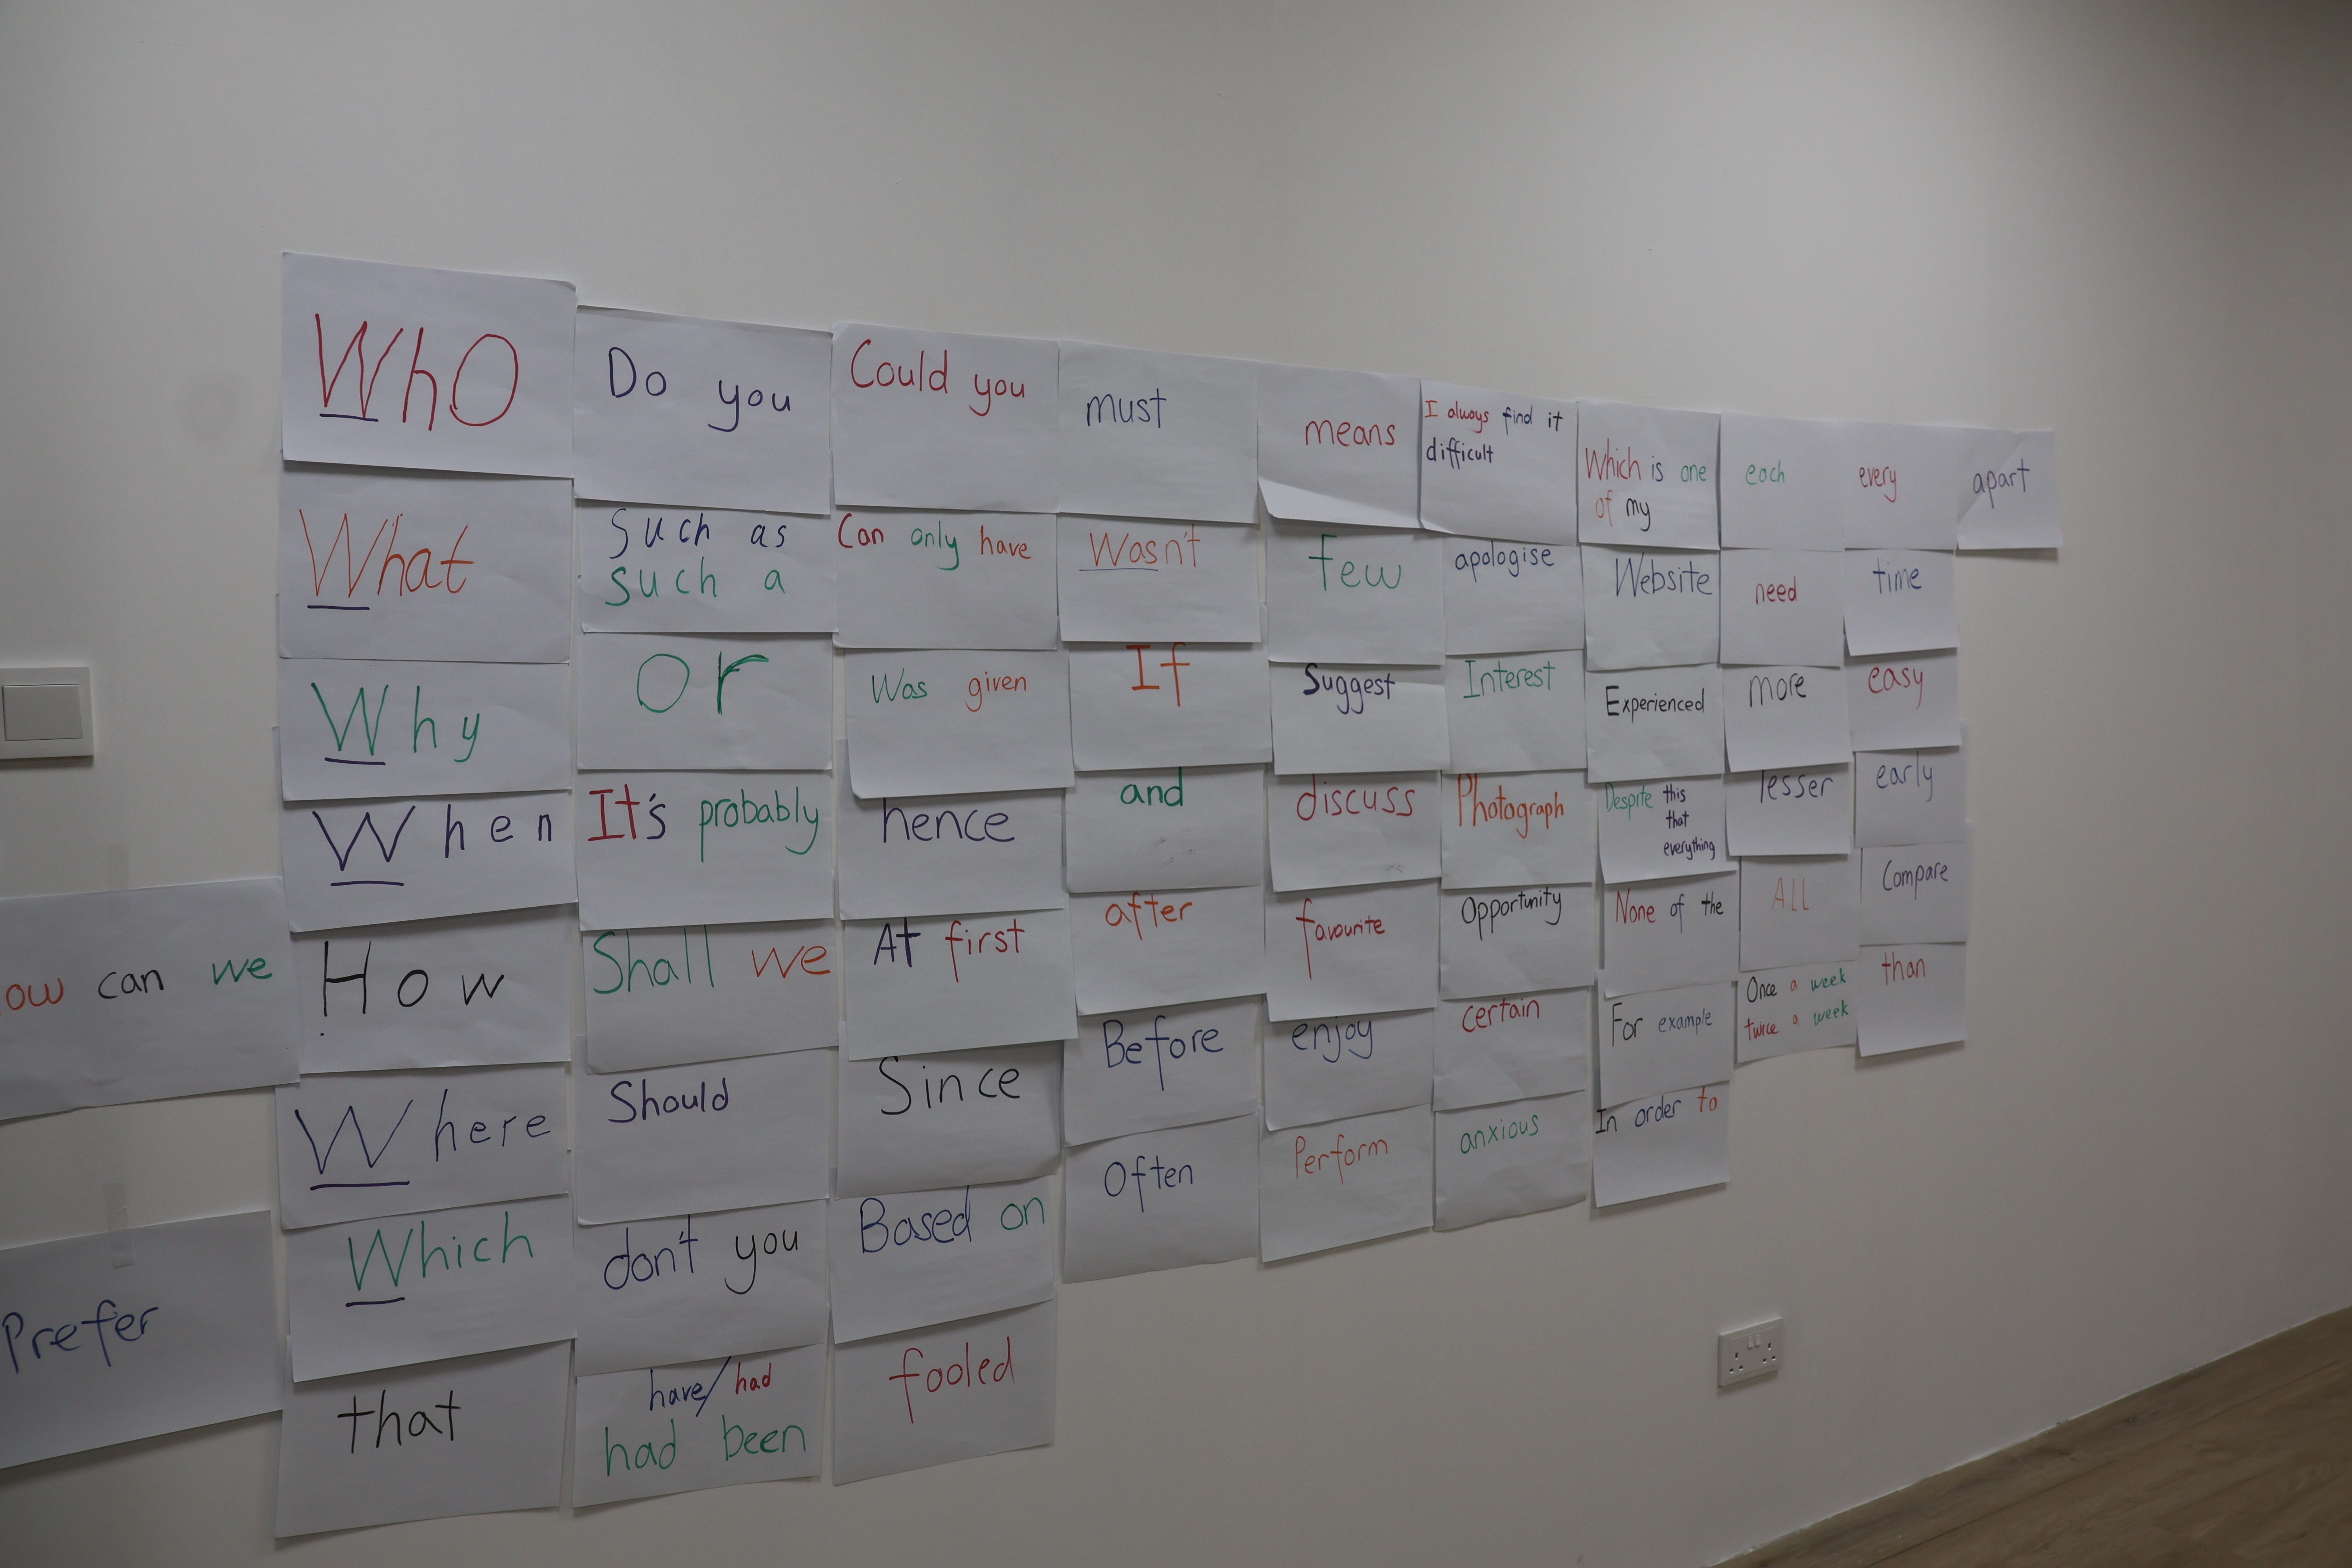 ow can we
Prefer
Who
What
Why
When
How
Where
Which
that
Do you
Such as
such a
Or
It's probably
Shall we
Should
don't you
have/had
had been
Could you
Can only have
Was given
hence
At first
Since
Based on
fooled
must
Wasn't
If
and
after
Before
Often
means
few
Suggest
discuss
favourite
enjoy
Perform
I always find it
difficult
apologise
Interest
Photograph
Opportunity
certain
anxious
Which is one
of my
Website
Experienced
Despite this
that
everything
None of the
For example
In order to
each
need
more
lesser
ALL
Once a week
twice a week
every
time
easy
early
Compare
than
apart